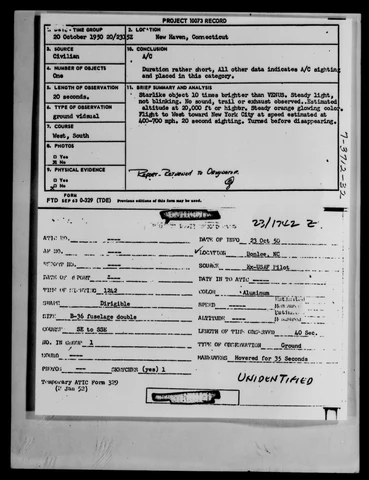 PROJECT 10073 RECORD
1. DATE - TIME GROUP
20 October 1950 20/2315Z
2. LOCATION
New Haven, Connecticut
3. SOURCE
Civilian
10. CONCLUSION
A/C
Duration rather short, All other data indicates A/C sighting
and placed in this category.
4. NUMBER OF OBJECTS
One
5. LENGTH OF OBSERVATION
20 seconds.
11. BRIEF SUMMARY AND ANALYSIS
Starlike object 10 times brighter than VENUS. Steady light,
not blinking. No sound, trail or exhaust observed. Estimated
altitude at 20,000 ft or higher. Steady orange glowing color
Flight to West toward New York City at speed estimated at
400-700 mph, 20 second sighting. Turned before disappearing.
6. TYPE OF OBSERVATION
ground visual
7. COURSE
West, South
8. PHOTOS
□ Yes
□ No
9. PHYSICAL EVIDENCE
□ Yes
□ No
Report Returned to Originator.
FTD SEP 63 0-329 (TDE) Previous editions of this form may be used.
7-3712-32
23/1742 Z
ATIC NO. ---
DATE OF INFO 23 Oct 50
AF NO. ---
LOCATION Bonlee, NC
REPORT NO. ---
SOURCE Ex-USAF Pilot
DATE OF REPORT ---
DATE IN TO ATIC ---
TIME OF SIGHTING 1242
COLOR Aluminum
SHAPE Dirigible
SPEED ---
SIZE B-36 fuselage double
ALTITUDE ---
COURSE SE to SSE
LENGTH OF TIME OBSERVED 40 Sec.
NO. IN GROUP 1
TYPE OF OBSERVATION Ground
SOUND ---
MANEUVERS Hovered for 35 Seconds
PHOTOS --- SKETCHES (yes) 1
UNIDENTIFIED
Temporary ATIC Form 329
(2 Jan 52)